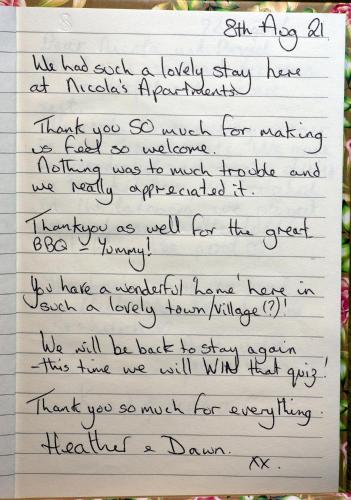 8th Aug 21.
We had such a lovely stay here
at Nicola's Apartments
Thank you SO much for making
us feel so welcome.
Nothing was to much trouble and
we really appreciated it.
Thankyou as well for the great
BBQ - Yummy!
You have a wonderful 'home' here in
such a lovely town/village(?)!
We will be back to stay again
-this time we will WIN that quiz!
Thank you so much for everything.
Heather & Dawn.
xx.